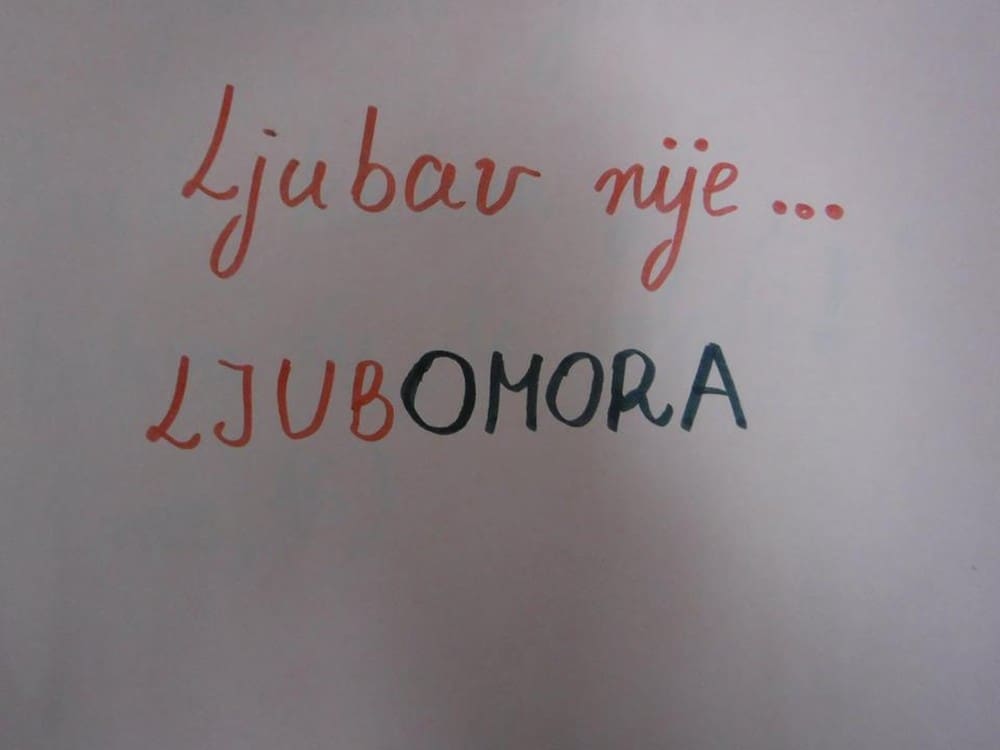 Ljubav nije...
LJUBOMORA